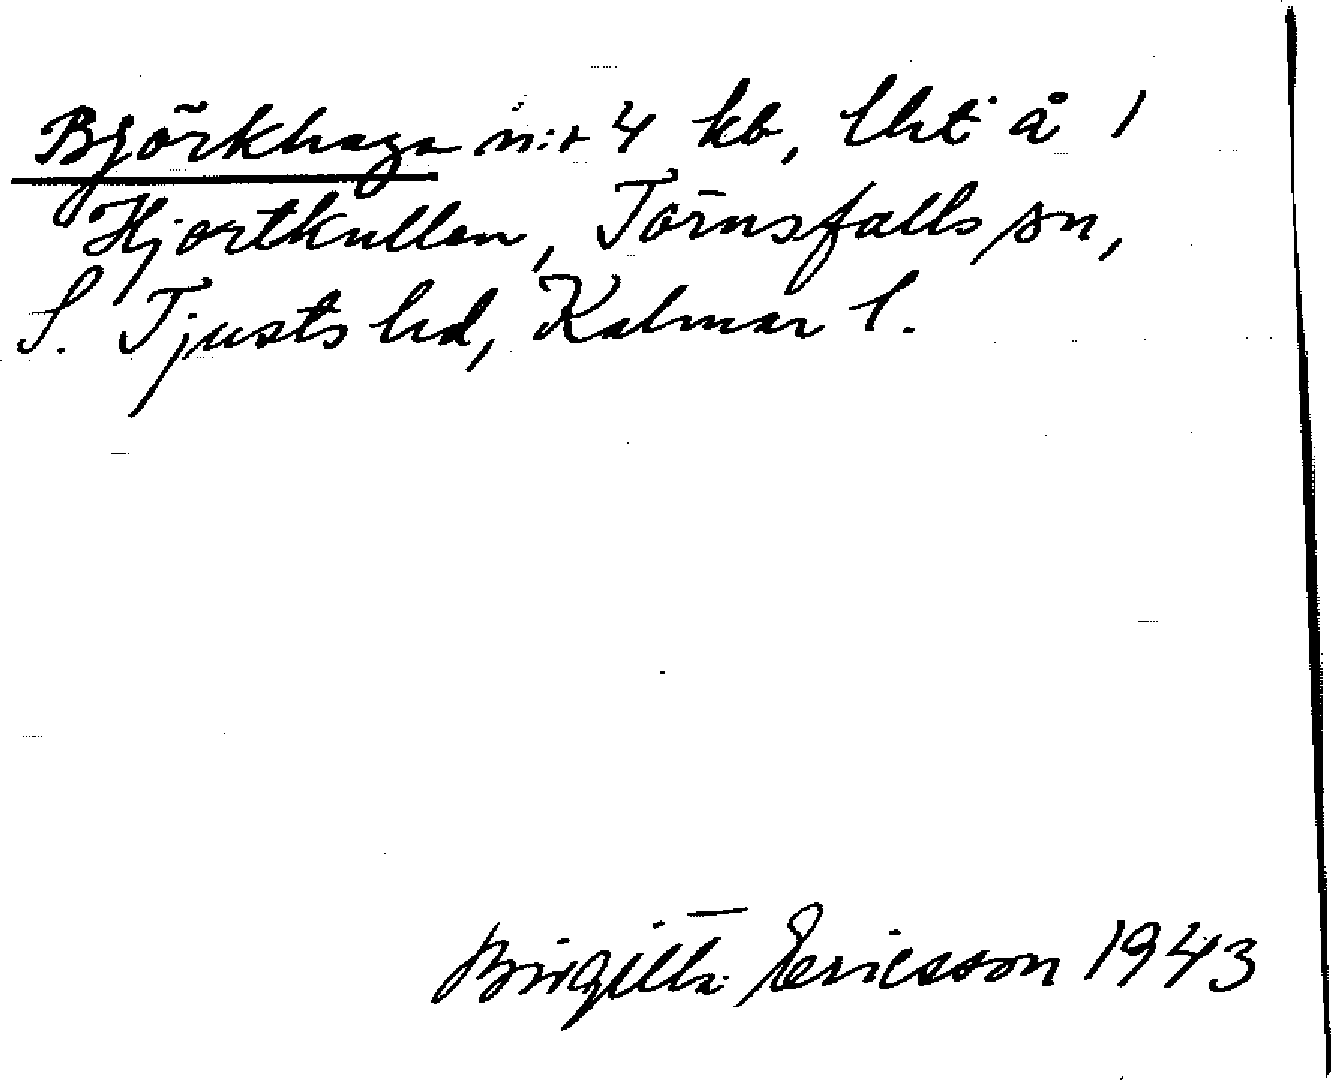 Björkhaga n:r 4 kb, lht å 1
Hjortkullen, Törnsfalls sn,
S. Tjusts hd, Kalmar l.
Birgitta Ericsson 1943